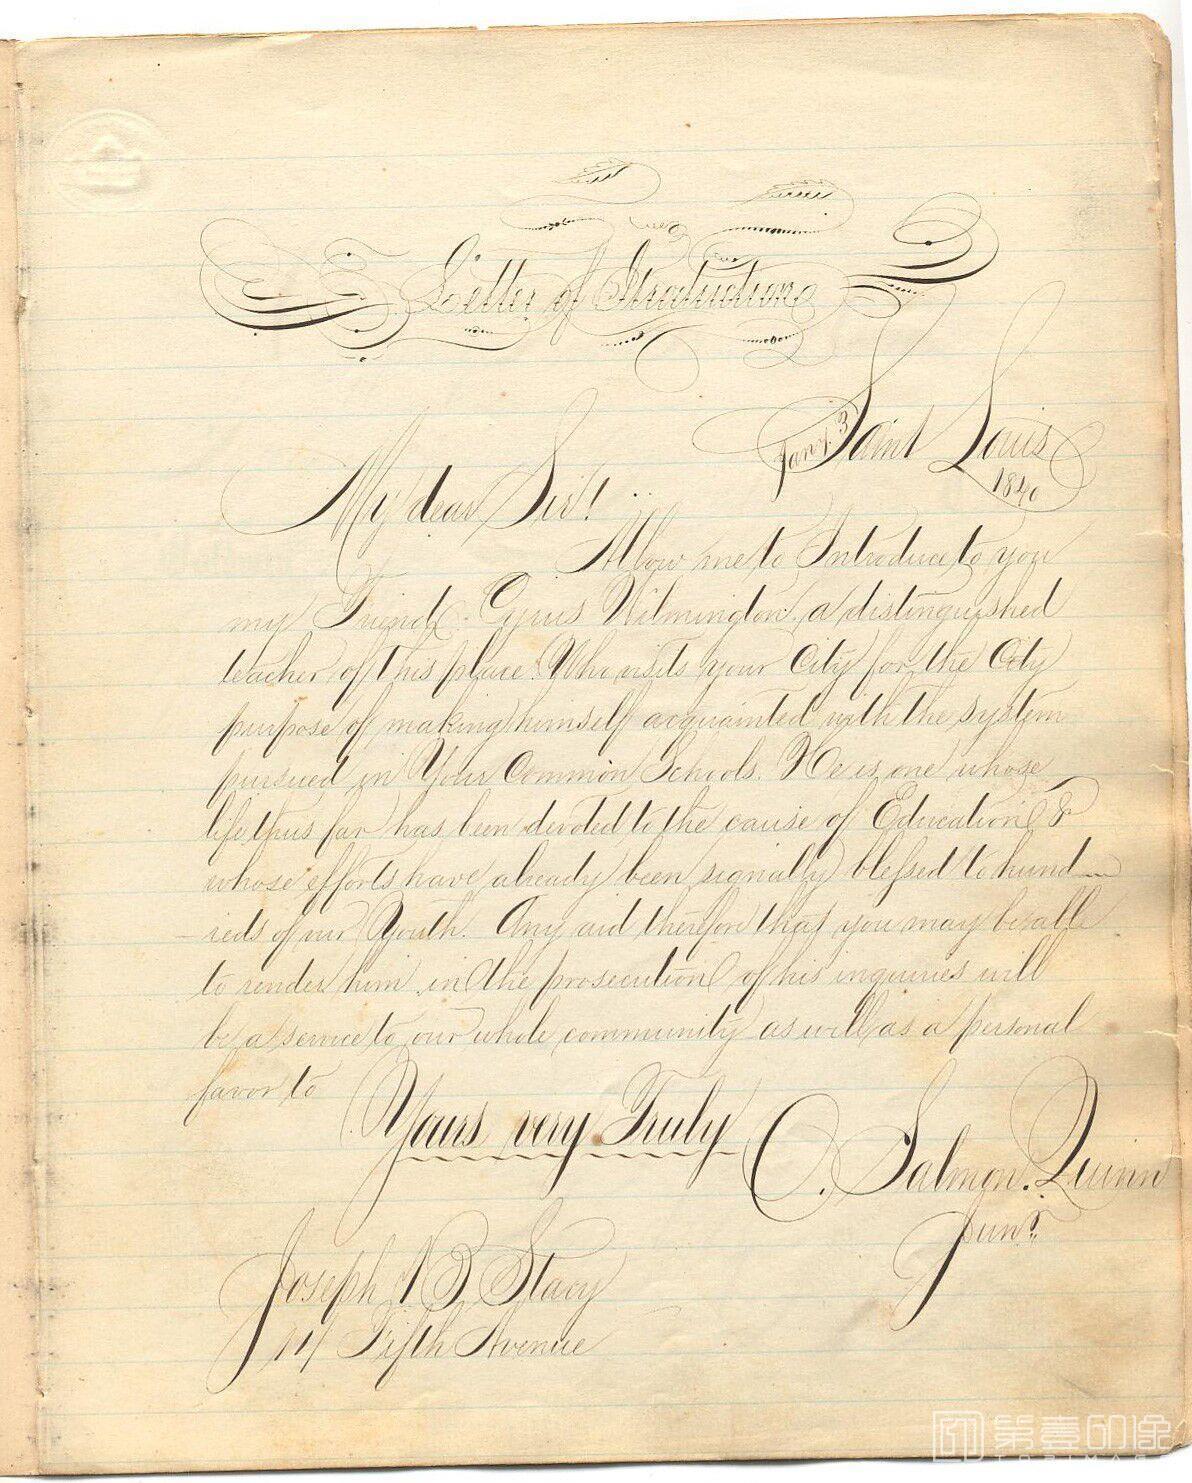 Letter of Itroduction
Saint Louis
Jany 3 1840
My dear Sir!
Allow me to Introduce to you
my Friend. Cyrus Wilmington, a distinguished
teacher of this place. Who visits your City for the City
purpose of making himself acquainted with the system
pursued in Your Common Schools. He is one whose
life thus far has been devoted to the cause of Education &
whose efforts have already been signally blessed to hund
reds of our Youth. Any aid therefore that you may be able
to render him in the prosecution of his inquiries will
be a service to our whole community as well as a personal
favor to
Yours very Truly
C. Salmon. Quinn
Junr.
Joseph B Stacy
Fifth Avenue
第壹印像